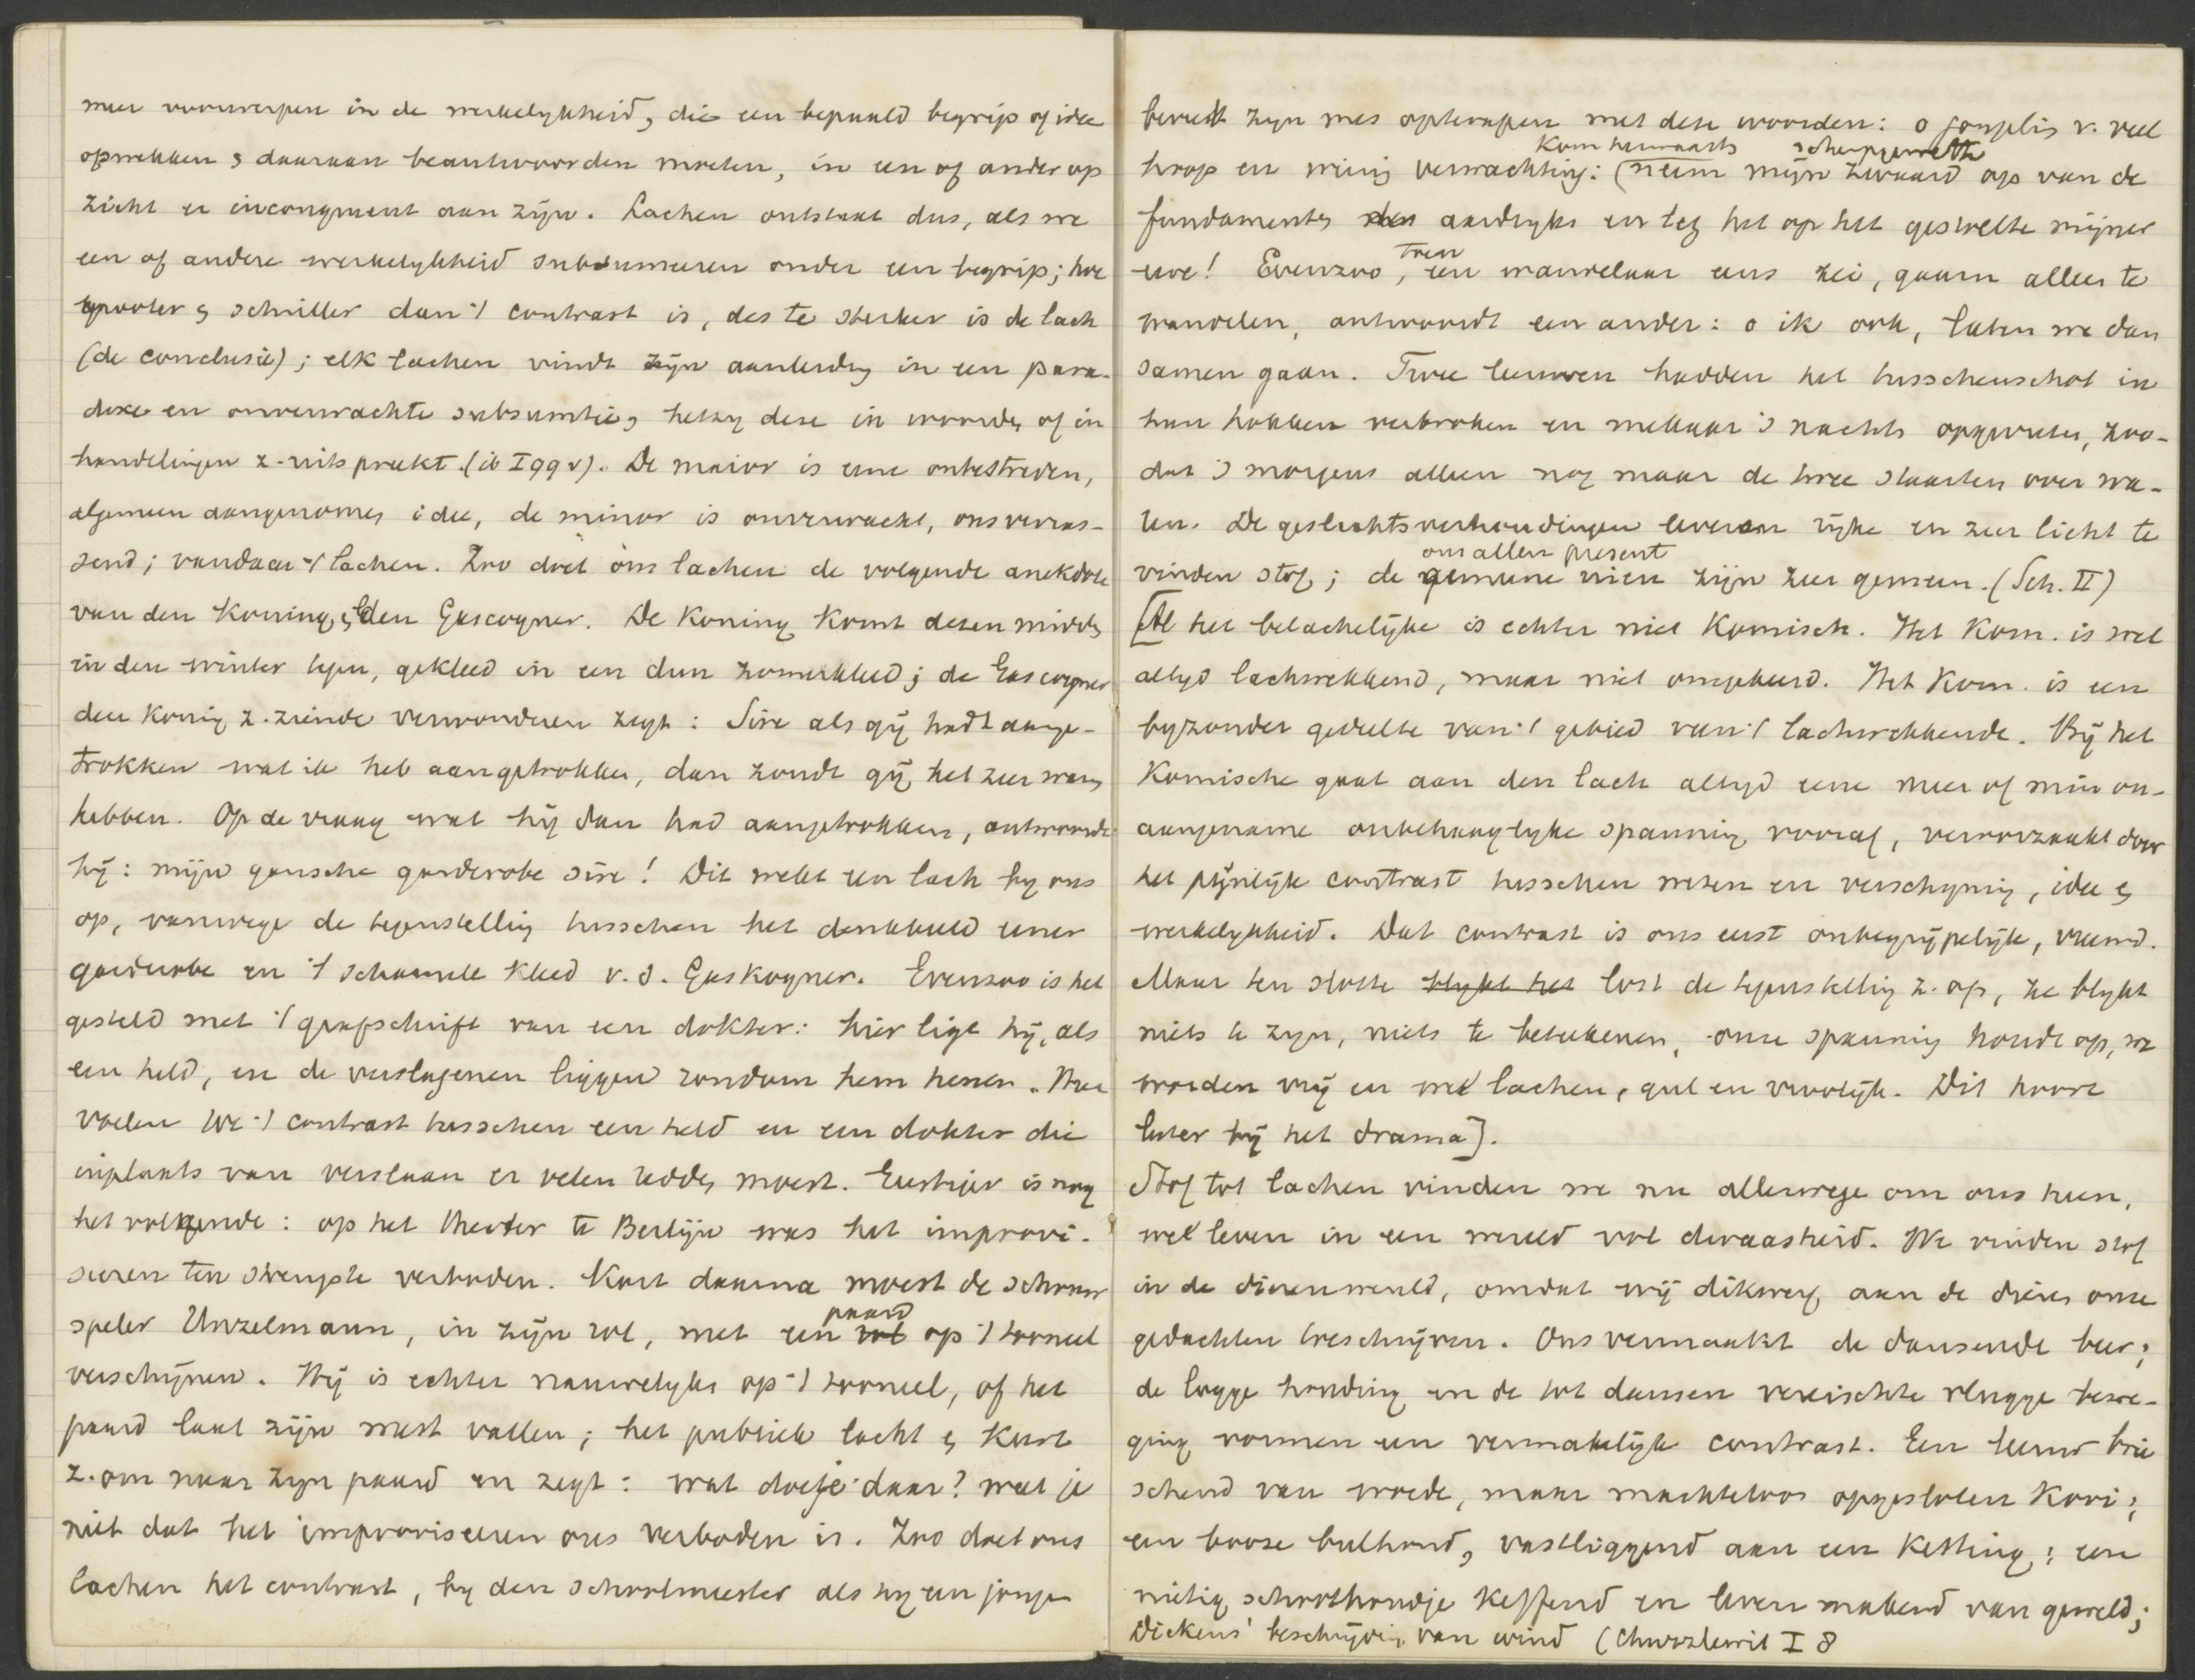 meer voorwerpen in de werkelykheid, die een bepaald begrip of idee
opwekken & daaraan beantwoorden moeten, in een of ander op
zicht er incongruent aan zijn. Lachen ontstaat dus, als we
een of andere werkelykheid subsumeeren onder een begrip; hoe
grooter & schriller dan 't contrast is, des te sterker is de lach
(de conclusie); elk lachen vindt zijn aanleidng in een para-
doxe en onverwachte subsumtie, hetzy deze in woorden of in
handelingen z. uitspreekt. (ib I 99 v). De maior is eene onbestreden,
algemeen aangenomen idee, de minor is onverwacht, ons verras-
send; vandaar 't lachen. Zoo doet ons lachen de volgende anekdote
van den Koning & den Gascogner. De Koning komt dezen midden
in den winter tegen, gekleed in een dun zomerkleed; de Gascogner
den Konig z. ziende verwonderen zegt: Sire als gij hadt aange-
trokken wat ik heb aangetrokken, dan zoudt gij het zeer warm
hebben. Op de vraag wat hij dan had aangetrokken, antwoordde
hij: mijn gansche garderobe sire! Dit wekt een lach by ons
op, vanwege de tegenstelling tusschen het denkbeeld eener
garderobe en 't schamele kleed v. d. Gaskogner. Evenzoo is het
gesteld met 't grafschrift van een dokter: hier ligt hij, als
een held, en de verslagenen liggen rondom hem henen. Hoe
voelen we 't contrast tusschen een held en een dokter die
inplaats van verslaan er velen redden moest. Eerstijer is nog
het volgende: op het theater te Berlijn was het improvi-
seeren ten strengste verboden. Kort daarna moest de schouw
speler Unzelmann, in zijn rol, met een paard op 't tooneel
verschijnen. Hij is echter nauwelyks op 't tooneel, of het
paard laat zijn mest vallen; het publiek lacht & keert
z. om naar zyn paard en zegt: wat doe je daar? weet je
niet dat het improviseeren ons verboden is. Zoo doet ons
lachen het contrast, by den schoolmeester als hy een jonge
bereidt zyn mes opterapen met deze woorden: o jongelin v. veel
hoop en wenig verwachting: (Kom herwaarts neem mijn scherpgewette zwaard op van de
fundamenten des aardryks en leg het op het geswelte mijner
treu
uwe! Evenzoo, een wandelaar eens zei, gaarn alleen te
wandelen, antwoordt een ander: o ik ook, laten we dan
samen gaan. Twee leeuwen hadden het tusschenschot in
hun hokken verbroken en mekaar 's nachts opgevreten, zoo-
dat 's morgens alleen nog maar de twee staarten over wa-
ren. De geslachtsverhoudingen leveren rijke en zeer licht te
vinden stof; de ons allen present gemeene vien zijn zeer gemeen. (Sch. II)
[Al het belachelijke is echter niet Komisch. Het Kom. is wel
altyd lachwekkend, maar niet omgekeerd. Het Kom. is een
byzonder gedeelte van 't gebied van 't lachwekkende. Bij het
Komische gaat aan den lach altyd eene meer of min on-
aangename onbehaaglyke spanning vooraf, veroorzaakt door
het pijnlijk contrast tusschen wezen en verschyning, idee &
werkelykheid. Dat contrast is ons eerst onbegrijpelijk, vreemd.
Maar ten slotte blykt het lost de tegenstelling z. op, ze blykt
niets te zyn, niets te beteekenen, onze spanning houdt op, we
worden vrij en we lachen, gul en vroolijk. Dit hoort
later bij het drama].
Stof tot lachen vinden we nu allerwege om ons heen,
we leven in een wereld vol dwaasheid. We vinden stof
in de dierenwereld, omdat wij dikwerf aan de dieren onze
gedachten toeschrijven. Ons vermaakt de dansende beer;
de logge houding en de tot dansen vereischte vlugge bewe-
ging vormen een vermakelijk contrast. Een leeuw brie
schend van woede, maar machteloos opgesloten Kooi;
een booze bulhond, vastliggend aan een Ketting; een
nietig schoothondje keffend en leven makend van geweld;
Dickens' beschrijving van wind (Chuzzlewit I 8